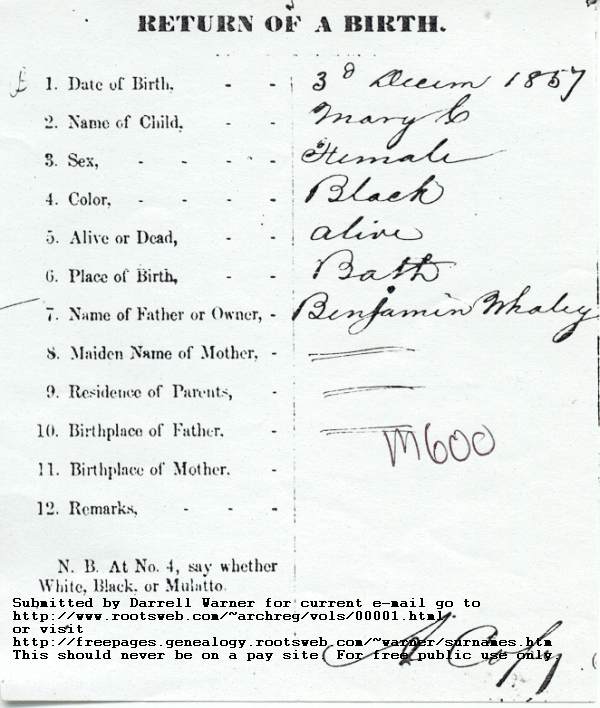 RETURN OF A BIRTH.
1. Date of Birth, - - 3d Decem 1857
2. Name of Child, - - Mary C
3. Sex, - - - - Female
4. Color, - - - - Black
5. Alive or Dead, - - alive
6. Place of Birth, - - Bath
7. Name of Father or Owner, - Benjamin Whaley
8. Maiden Name of Mother, -
9. Residence of Parents, -
10. Birthplace of Father, -
M600
11. Birthplace of Mother. -
12. Remarks, - - -
N. B. At No. 4, say whether
White, Black, or Mulatto.
Submitted by Darrell Warner for current e-mail go to
http://www.rootsweb.com/~archreg/vols/00001.html
or visit
http://freepages.genealogy.rootsweb.com/~warner/surnames.htm
This should never be on a pay site. For free public use only
A Copy